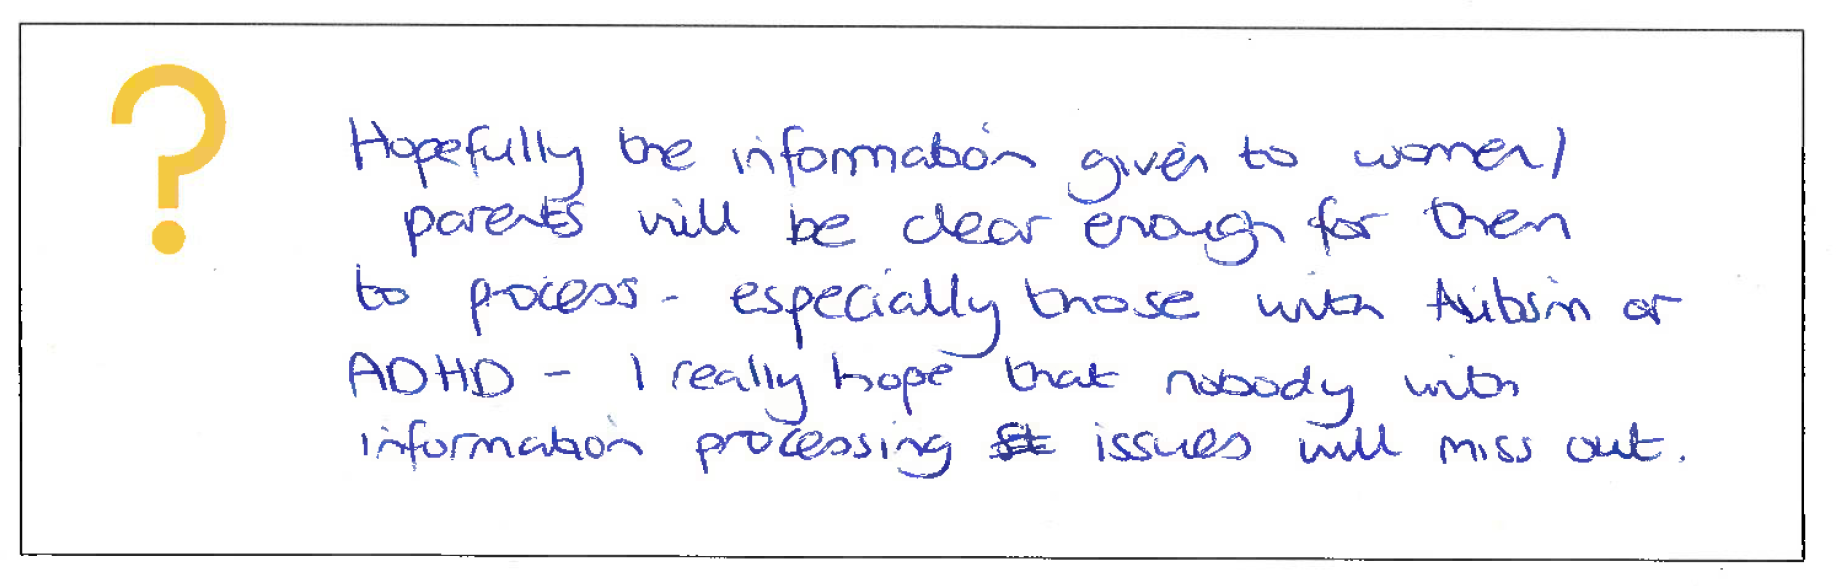 Hopefully the information given to women/
parents will be clear enough for them
to process - especially those with Autism or
ADHD - I really hope that nobody with
information processing issues will miss out.